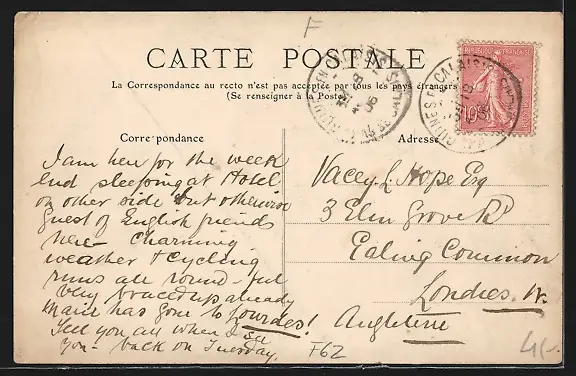 F
CARTE POSTALE
La Correspondance au recto n'est pas acceptée par tous les pays étrangers
(Se renseigner à la Poste)
REPUBLIQUE FRANÇAISE
10
Correspondance
Adresse
I am here for the week
end sleeping at Hotel
on other side but otherwise
guest of English friends
here - Charming
weather & cycling
runs all round - feel
very braced up already
Marie has gone to Lourdes!
Tell you all when I see
you - back on Tuesday.
Vacey L Hope Esq
3 Elm Grove Rd
Ealing Common
Londres. W.
Angleterre
F62
4/-